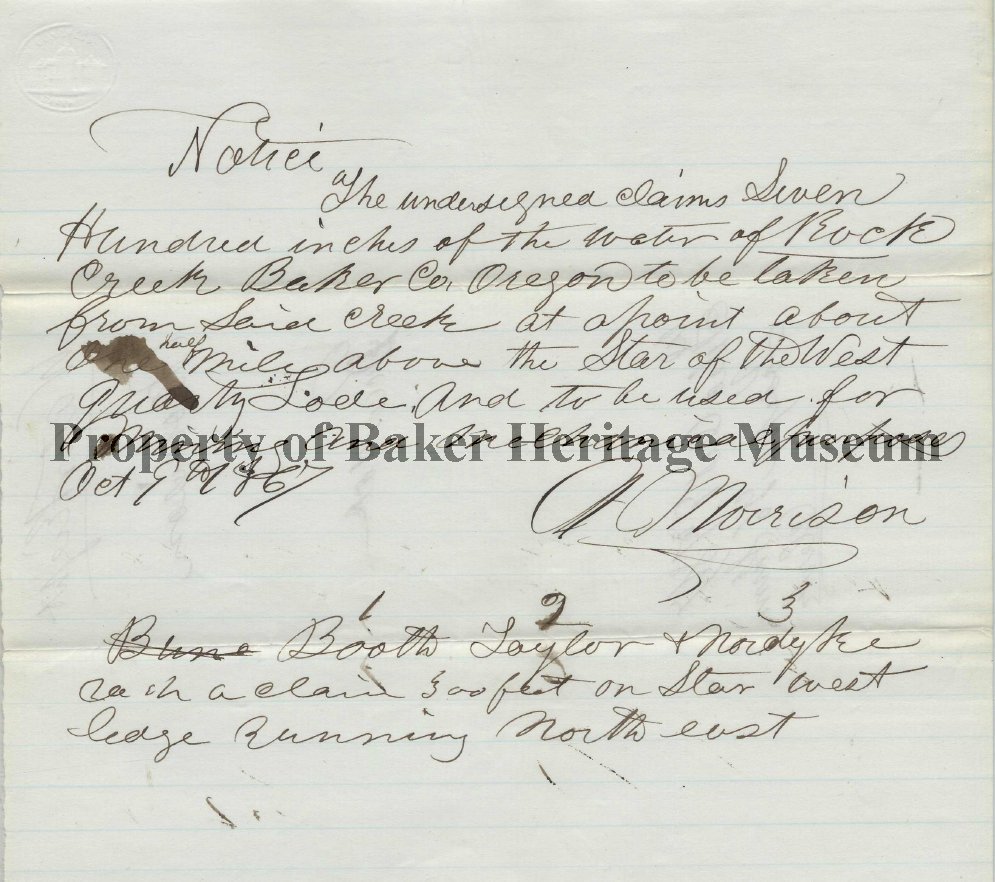 Notice
The undersigned claims Seven
Hundred inches of the water of Rock
Creek Baker Co, Oregon to be taken
from Said Creek at a point about
half
mile above the Star of the West
Quartz Lode, And to be used for
Property of Baker Heritage Museum
Mining and purposes
Oct 1867
Morrison
1 2 3
Booth Taylor & Nordyke
each a claim 300 feet on Star west
ledge running North east